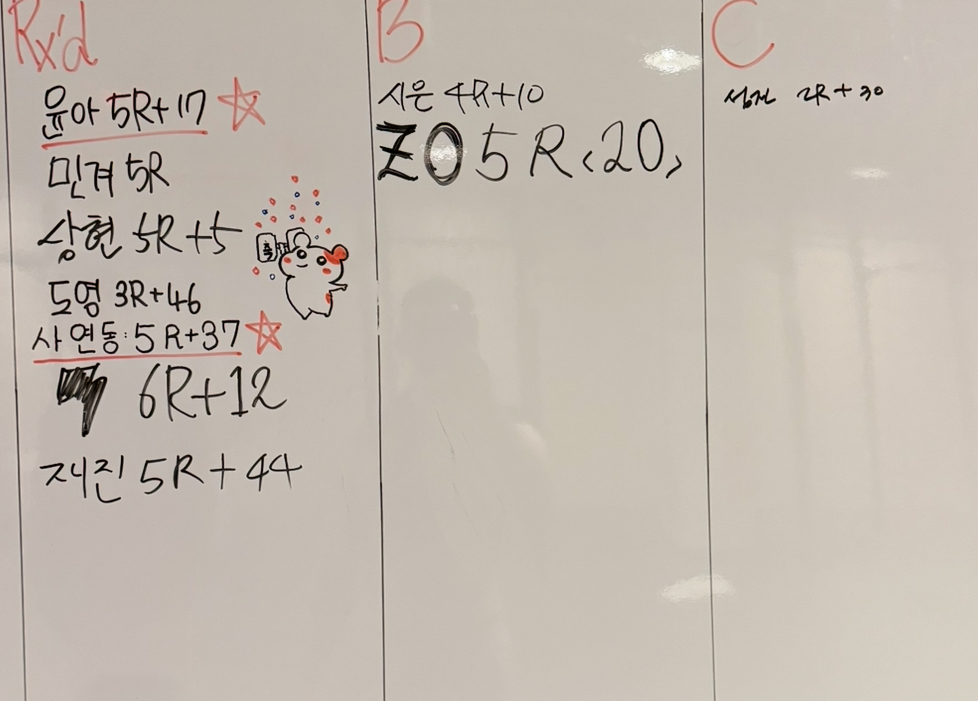 Rx'd
윤아 5R+17
민겨 5R
상현 5R+5
축
도영 3R+46
사연동: 5R+37
6R+12
재진 5R+44
B
시은 4R+10
ZO 5R <20>
C
2R+30